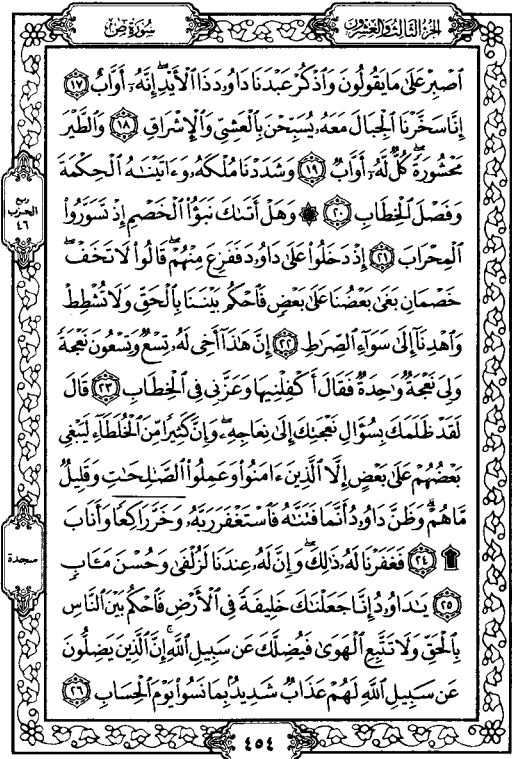 سُورَةُ صٓ
الجُزْءُ الثَّالِثُ وَالعِشْرُون
ٱصۡبِرۡ عَلَىٰ مَا يَقُولُونَ وَٱذۡكُرۡ عَبۡدَنَا دَاوُۥدَ ذَا ٱلۡأَيۡدِۖ إِنَّهُۥٓ أَوَّابٌ ١٧
إِنَّا سَخَّرۡنَا ٱلۡجِبَالَ مَعَهُۥ يُسَبِّحۡنَ بِٱلۡعَشِيِّ وَٱلۡإِشۡرَاقِ ١٨ وَٱلطَّيۡرَ
مَحۡشُورَةٗۖ كُلّٞ لَّهُۥٓ أَوَّابٞ ١٩ وَشَدَدۡنَا مُلۡكَهُۥ وَءَاتَيۡنَٰهُ ٱلۡحِكۡمَةَ
وَفَصۡلَ ٱلۡخِطَابِ ٢٠ ۞ وَهَلۡ أَتَىٰكَ نَبَؤُاْ ٱلۡخَصۡمِ إِذۡ تَسَوَّرُواْ
ٱلۡمِحۡرَابَ ٢١ إِذۡ دَخَلُواْ عَلَىٰ دَاوُۥدَ فَفَزِعَ مِنۡهُمۡۖ قَالُواْ لَا تَخَفۡۖ
خَصۡمَانِ بَغَىٰ بَعۡضُنَا عَلَىٰ بَعۡضٖ فَٱحۡكُم بَيۡنَنَا بِٱلۡحَقِّ وَلَا تُشۡطِطۡ
وَٱهۡدِنَآ إِلَىٰ سَوَآءِ ٱلصِّرَٰطِ ٢٢ إِنَّ هَٰذَآ أَخِي لَهُۥ تِسۡعٞ وَتِسۡعُونَ نَعۡجَةٗ
وَلِيَ نَعۡجَةٞ وَٰحِدَةٞ فَقَالَ أَكۡفِلۡنِيهَا وَعَزَّنِي فِي ٱلۡخِطَابِ ٢٣ قَالَ
لَقَدۡ ظَلَمَكَ بِسُؤَالِ نَعۡجَتِكَ إِلَىٰ نِعَاجِهِۦۖ وَإِنَّ كَثِيرٗا مِّنَ ٱلۡخُلَطَآءِ لَيَبۡغِي
بَعۡضُهُمۡ عَلَىٰ بَعۡضٍ إِلَّا ٱلَّذِينَ ءَامَنُواْ وَعَمِلُواْ ٱلصَّٰلِحَٰتِ وَقَلِيلٞ
مَّا هُمۡۗ وَظَنَّ دَاوُۥدُ أَنَّمَا فَتَنَّٰهُ فَٱسۡتَغۡفَرَ رَبَّهُۥ وَخَرَّ رَاكِعٗا وَأَنَابَ
۩ ٢٤ فَغَفَرۡنَا لَهُۥ ذَٰلِكَۖ وَإِنَّ لَهُۥ عِندَنَا لَزُلۡفَىٰ وَحُسۡنَ مَـَٔابٖ
٢٥ يَٰدَاوُۥدُ إِنَّا جَعَلۡنَٰكَ خَلِيفَةٗ فِي ٱلۡأَرۡضِ فَٱحۡكُم بَيۡنَ ٱلنَّاسِ
بِٱلۡحَقِّ وَلَا تَتَّبِعِ ٱلۡهَوَىٰ فَيُضِلَّكَ عَن سَبِيلِ ٱللَّهِۚ إِنَّ ٱلَّذِينَ يَضِلُّونَ
عَن سَبِيلِ ٱللَّهِ لَهُمۡ عَذَابٞ شَدِيدُۢ بِمَا نَسُواْ يَوۡمَ ٱلۡحِسَابِ ٢٦
ربع
الحزب
٤٦
سجدة
٤٥٤